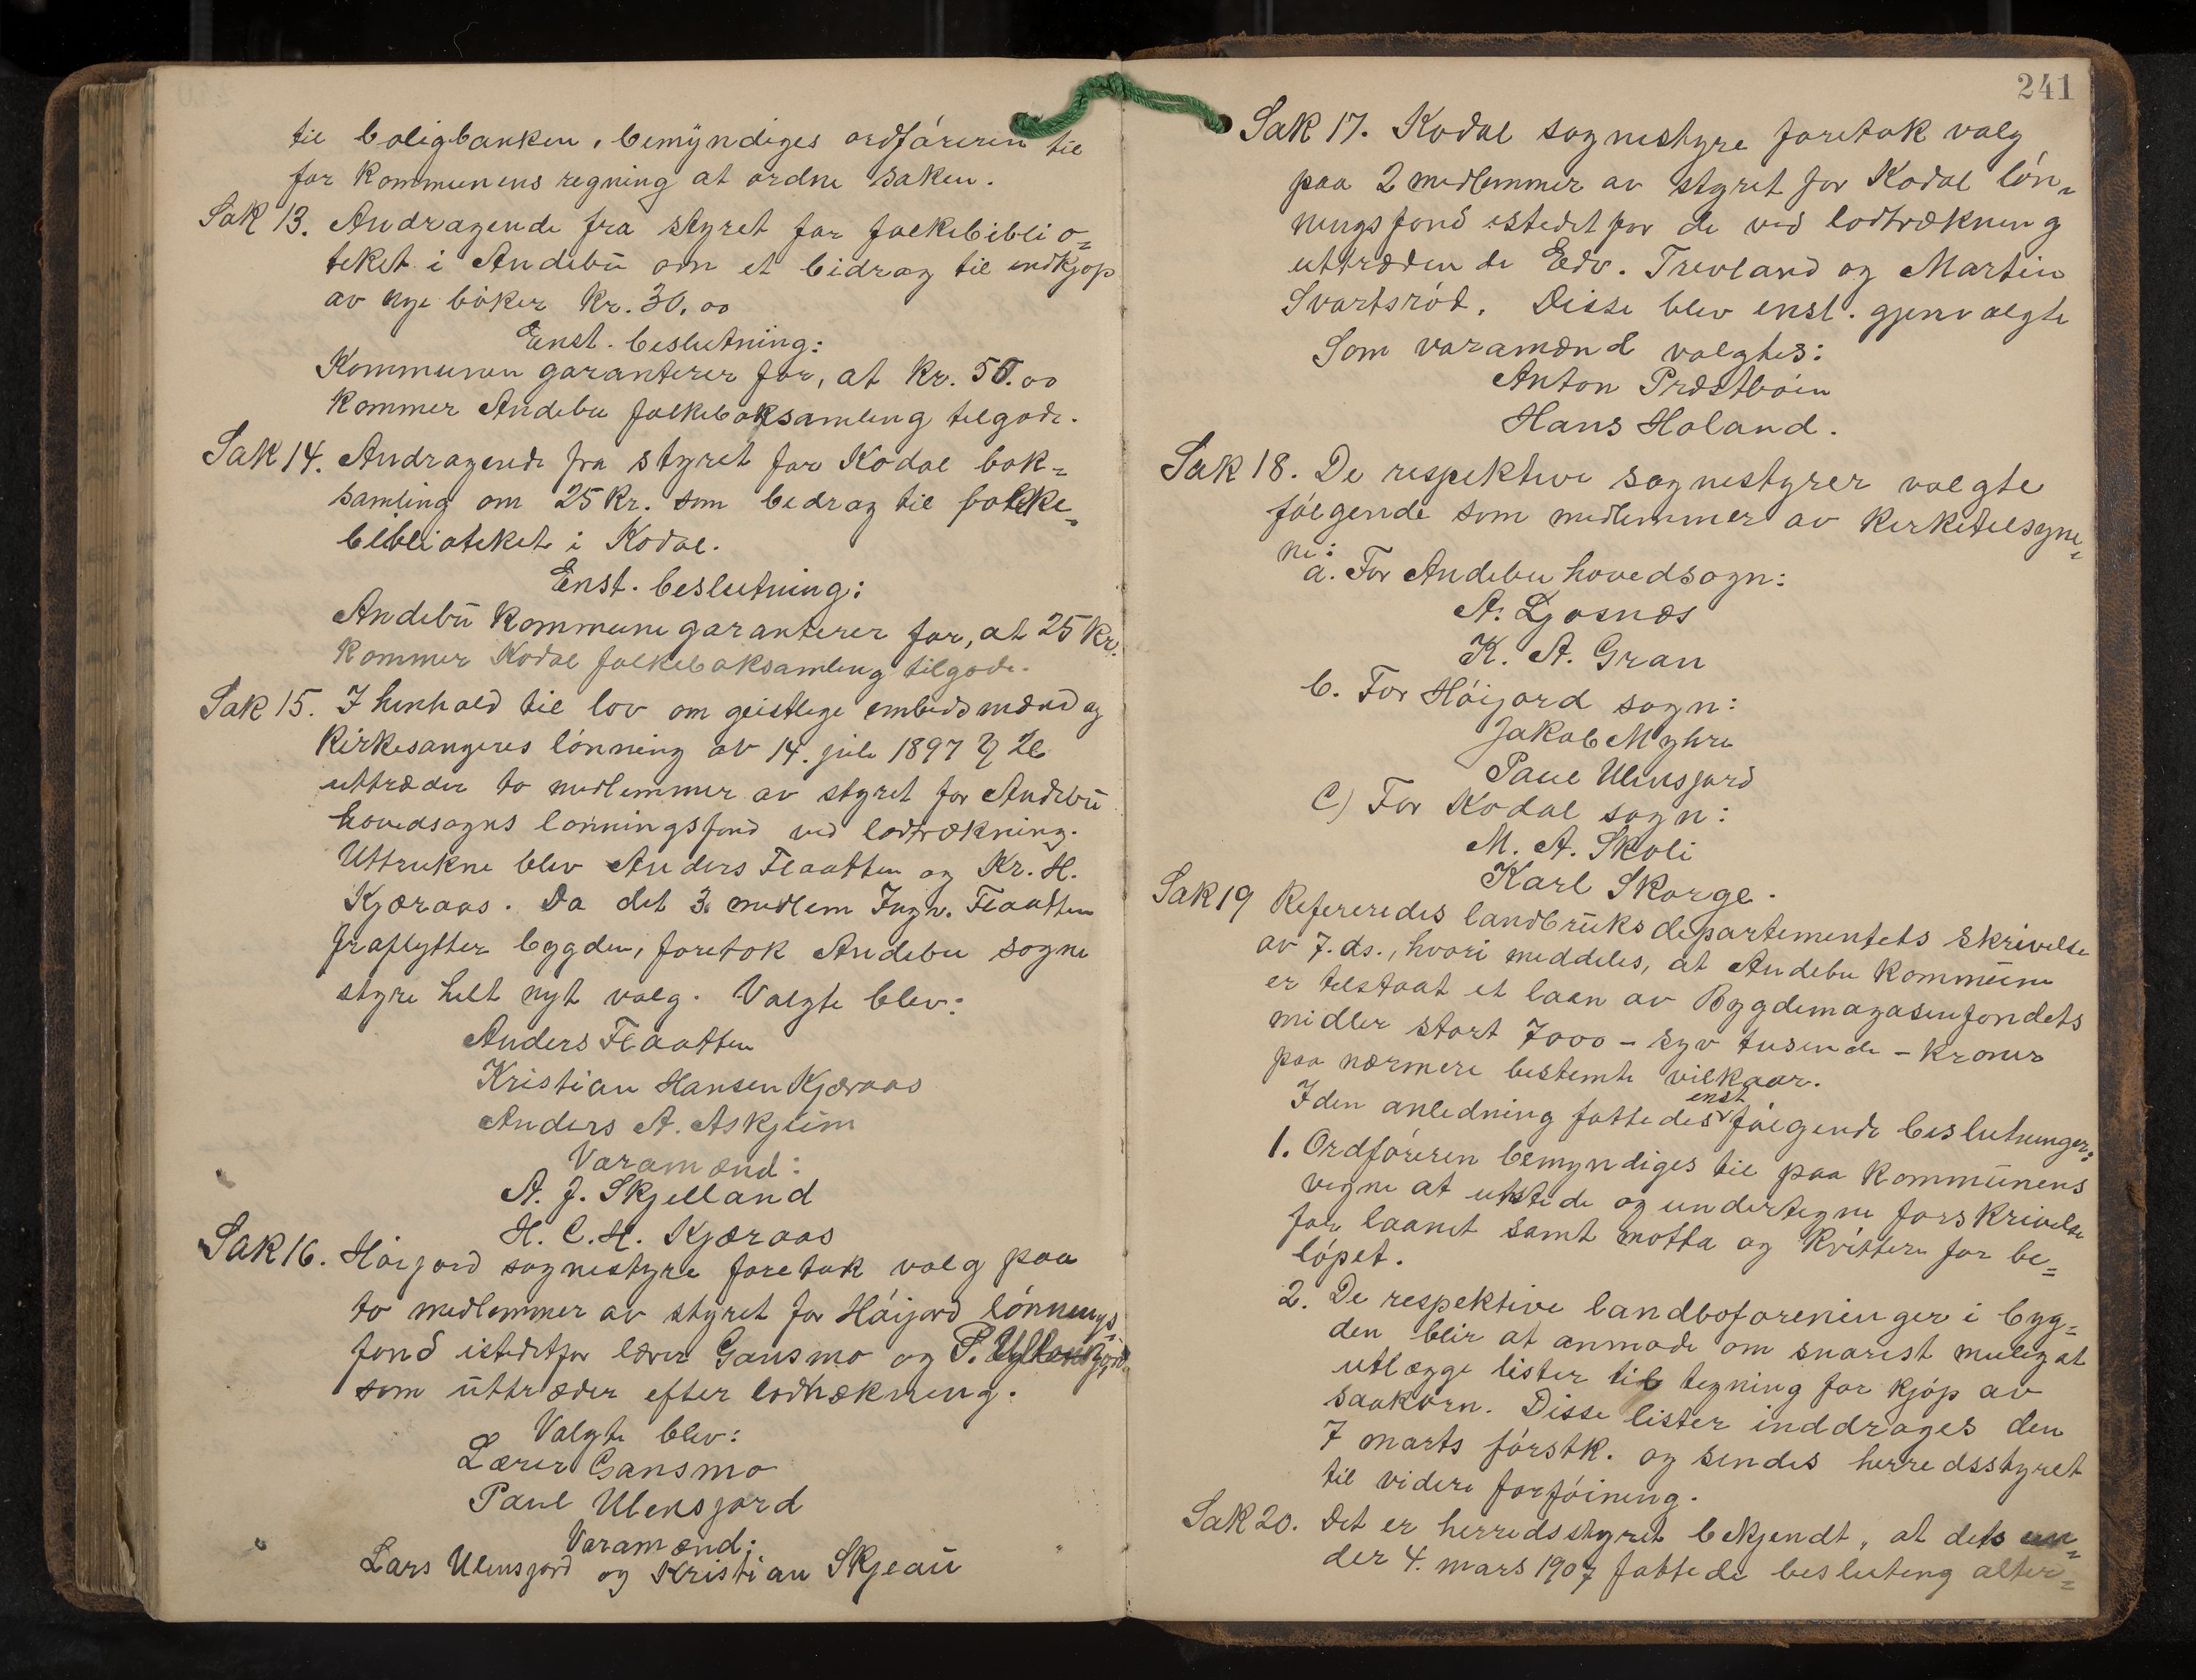 til boligbanken, bemyndiges ordføreren til
for kommunens regning at ordne saken.
Sak 13. Andragende fra styret for folkebiblio=
teket i Andebu om et bidrag til indkjøp
av nye bøker kr. 30,00
Enst. beslutning:
Kommunen garanterer for, at kr. 50.00
kommer Andebu folkeboksamling tilgode.
Sak 14. Andragende fra styret for Kodal bok=
samling om 25 kr. som bidrag til folke=
biblioteket i Kodal.
Enst. beslutning:
Andebu kommune garanterer for, at 25 kr.
kommer Kodal folkeboksamling tilgode.
Sak 15. I henhold til lov om geistlige embedsmænd og
kirkesangeres lønning av 14. juli 1897 §
uttræder to medlemmer av styret for Andebu
hovedsogns lønningsfond ved lodtrækning.
Uttrukne blev Anders Flaatten og Kr. H.
Kjæraas. Da det 3. medlem Ingv. Flaatten
fraflytter bygden, foretok Andebu sogne
styre helt nyt valg. Valgte blev:
Anders Flaatten
Kristian Hansen Kjæraas
Anders A. Askjum
Varamænd:
A. J. Skjelland
H. C. H. Kjæraas
Sak 16. Høijord sognestyre foretok valg paa
to medlemmer av styret for Høijord lønnings=
fond istedetfor lærer Gansmo og P.
som uttræder efter lodtrækning.
Valgte blev:
Lærer Gansmo
Paul Ulensjord
Varamænd:
Lars Ulensjord og Kristian Skjeau
241
Sak 17. Kodal sognestyre foretok valg
paa 2 medlemmer av styret for Kodal løn=
ningsfond istedet for de ved lodtrækning
uttrædende Edv. Trevland og Martin
Svartsrød. Disse blev enst. gjenvalgte
Som varamænd valgtes:
Anton Præstbøen
Hans Holand.
Sak 18. De respektive sognestyrer valgte
følgende som medlemmer av kirketilsyne=
ne:
a. For Andebu hovedsogn:
A. Ljosnæs
K. A. Gran
b. For Høijord sogn:
Jakob Myhre
Paul Ulensjord
C) For Kodal sogn:
M. A. Skoli
Karl Skorge.
Sak 19 Refereredes landbruksdepartementets skrivelse
av 7. ds., hvori meddeles, at Andebu kommune
er tilstaat et laan av Bygdemagasinfondets
midler stort 7000 – syv tusinde – kroner
paa nærmere bestemte vilkaar.
I den anledning fattedes enst følgende beslutninger:
1. Ordføreren bemyndiges til paa kommunens
vegne at utstede og undertegne forskrivelse
for laanet samt motta og kvittere for be=
løpet.
2. De respektive landboforeninger i byg=
den blir at anmode om snarest mulig at
utlægge lister til tegning for kjøp av
saakorn. Disse lister inddrages den
7 marts førstk. og sendes herredsstyret
til videre forføining.
Sak 20. Det er herredsstyret bekjendt, at dets un=
der 4. mars 1907 fattede beslutning alter=